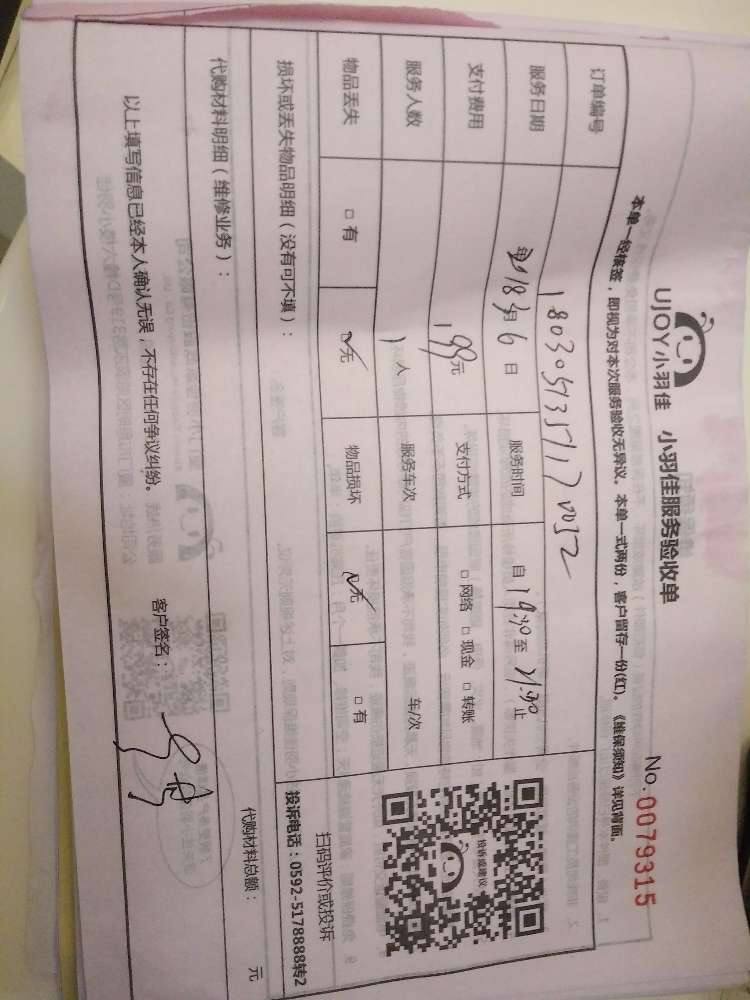 UJOY小羽佳 小羽佳服务验收单
No.0079315
本单一经核签,即视为对本次服务验收无异议。本单一式两份,客户留存一份(红)。《维保须知》详见背面。
订单编号 1803057357170032
服务日期 2018年3月6日 服务时间 自19:30至21:30止
支付费用 199元 支付方式 □网络 □现金 □转账
服务人数 1人 服务车次 车/次
物品丢失 □有 ☑无 物品损坏 ☑无 □有
投诉或建议
扫码评价或投诉
投诉电话:0592-5178888转2
损坏或丢失物品明细(没有可不填):
代购材料明细(维修业务): 代购材料总额: 元
以上填写信息已经本人确认无误,不存在任何争议纠纷。 客户签名: